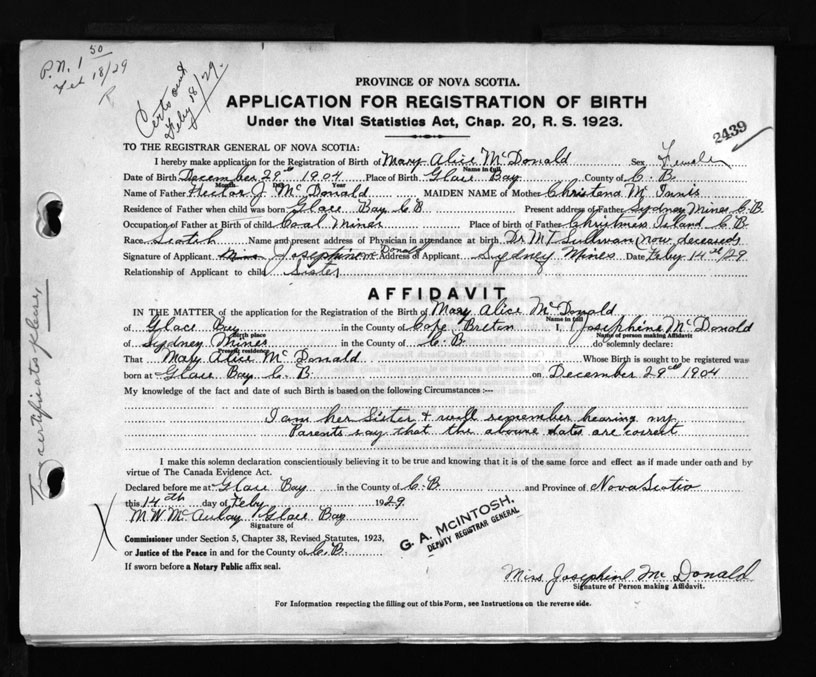 P.N. 1 50
Feb 18/29
R
Certs out
Feby 18/29.
PROVINCE OF NOVA SCOTIA.
APPLICATION FOR REGISTRATION OF BIRTH
Under the Vital Statistics Act, Chap. 20, R. S. 1923.
2439
TO THE REGISTRAR GENERAL OF NOVA SCOTIA:
I hereby make application for the Registration of Birth of Mary Alice McDonald Sex Female
Name in full
Date of Birth December 29th 1904 Place of Birth Glace Bay County of C. B.
Month Day Year
Name of Father Hector J. McDonald MAIDEN NAME of Mother Christena McInnis
Residence of Father when child was born Glace Bay C B Present address of Father Sydney Mines C. B.
Occupation of Father at Birth of child Coal Miner Place of birth of Father Christmas Island C B
Race Scotch Name and present address of Physician in attendance at birth Dr M. Sullivan (now deceased)
Signature of Applicant Miss Josephine McDonald Address of Applicant Sydney Mines Date Feby 14th/29
Relationship of Applicant to child Sister
AFFIDAVIT
IN THE MATTER of the application for the Registration of the Birth of Mary Alice McDonald
Name in full
of Glace Bay in the County of Cape Breton I, Josephine McDonald
Birth place Name of person making Affidavit
of Sydney Mines in the County of C. B. do solemnly declare:
Present residence
That Mary Alice McDonald Whose Birth is sought to be registered was
born at Glace Bay C. B. on December 29th 1904
My knowledge of the fact and date of such Birth is based on the following Circumstances :—
I am her Sister & will remember hearing my
Parents say that the above dates are correct
I make this solemn declaration conscientiously believing it to be true and knowing that it is of the same force and effect as if made under oath and by
virtue of The Canada Evidence Act.
Declared before me at Glace Bay in the County of C. B. and Province of Nova Scotia
this 14th day of Feby 1929
M. W. McAulay Glace Bay
Signature of
Commissioner under Section 5, Chapter 38, Revised Statutes, 1923,
or Justice of the Peace in and for the County of C. B.
If sworn before a Notary Public affix seal.
G. A. McINTOSH,
DEPUTY REGISTRAR GENERAL
Miss Josephine McDonald
Signature of Person making Affidavit.
For Information respecting the filling out of this Form, see Instructions on the reverse side.
certificates please,